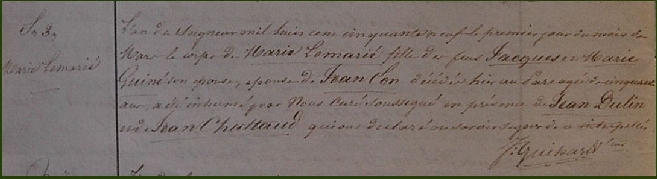 Sre 3e
Marie Lemarié
L'an du Seigneur mil huit cent cinquante neuf le premier jour du mois de
Mars le corps de Marie Lemarié fille de feus Jacques et Marie
Guiné son épouse, épouse de Jean Con décédée hier au Parc agée de cinquante
ans, a été inhumé par Nous Curé Soussigné en présence de Jean Dulin
et de Jean Chattaud qui ont déclaré ne savoir signer de ce interpellés
J. Guichard